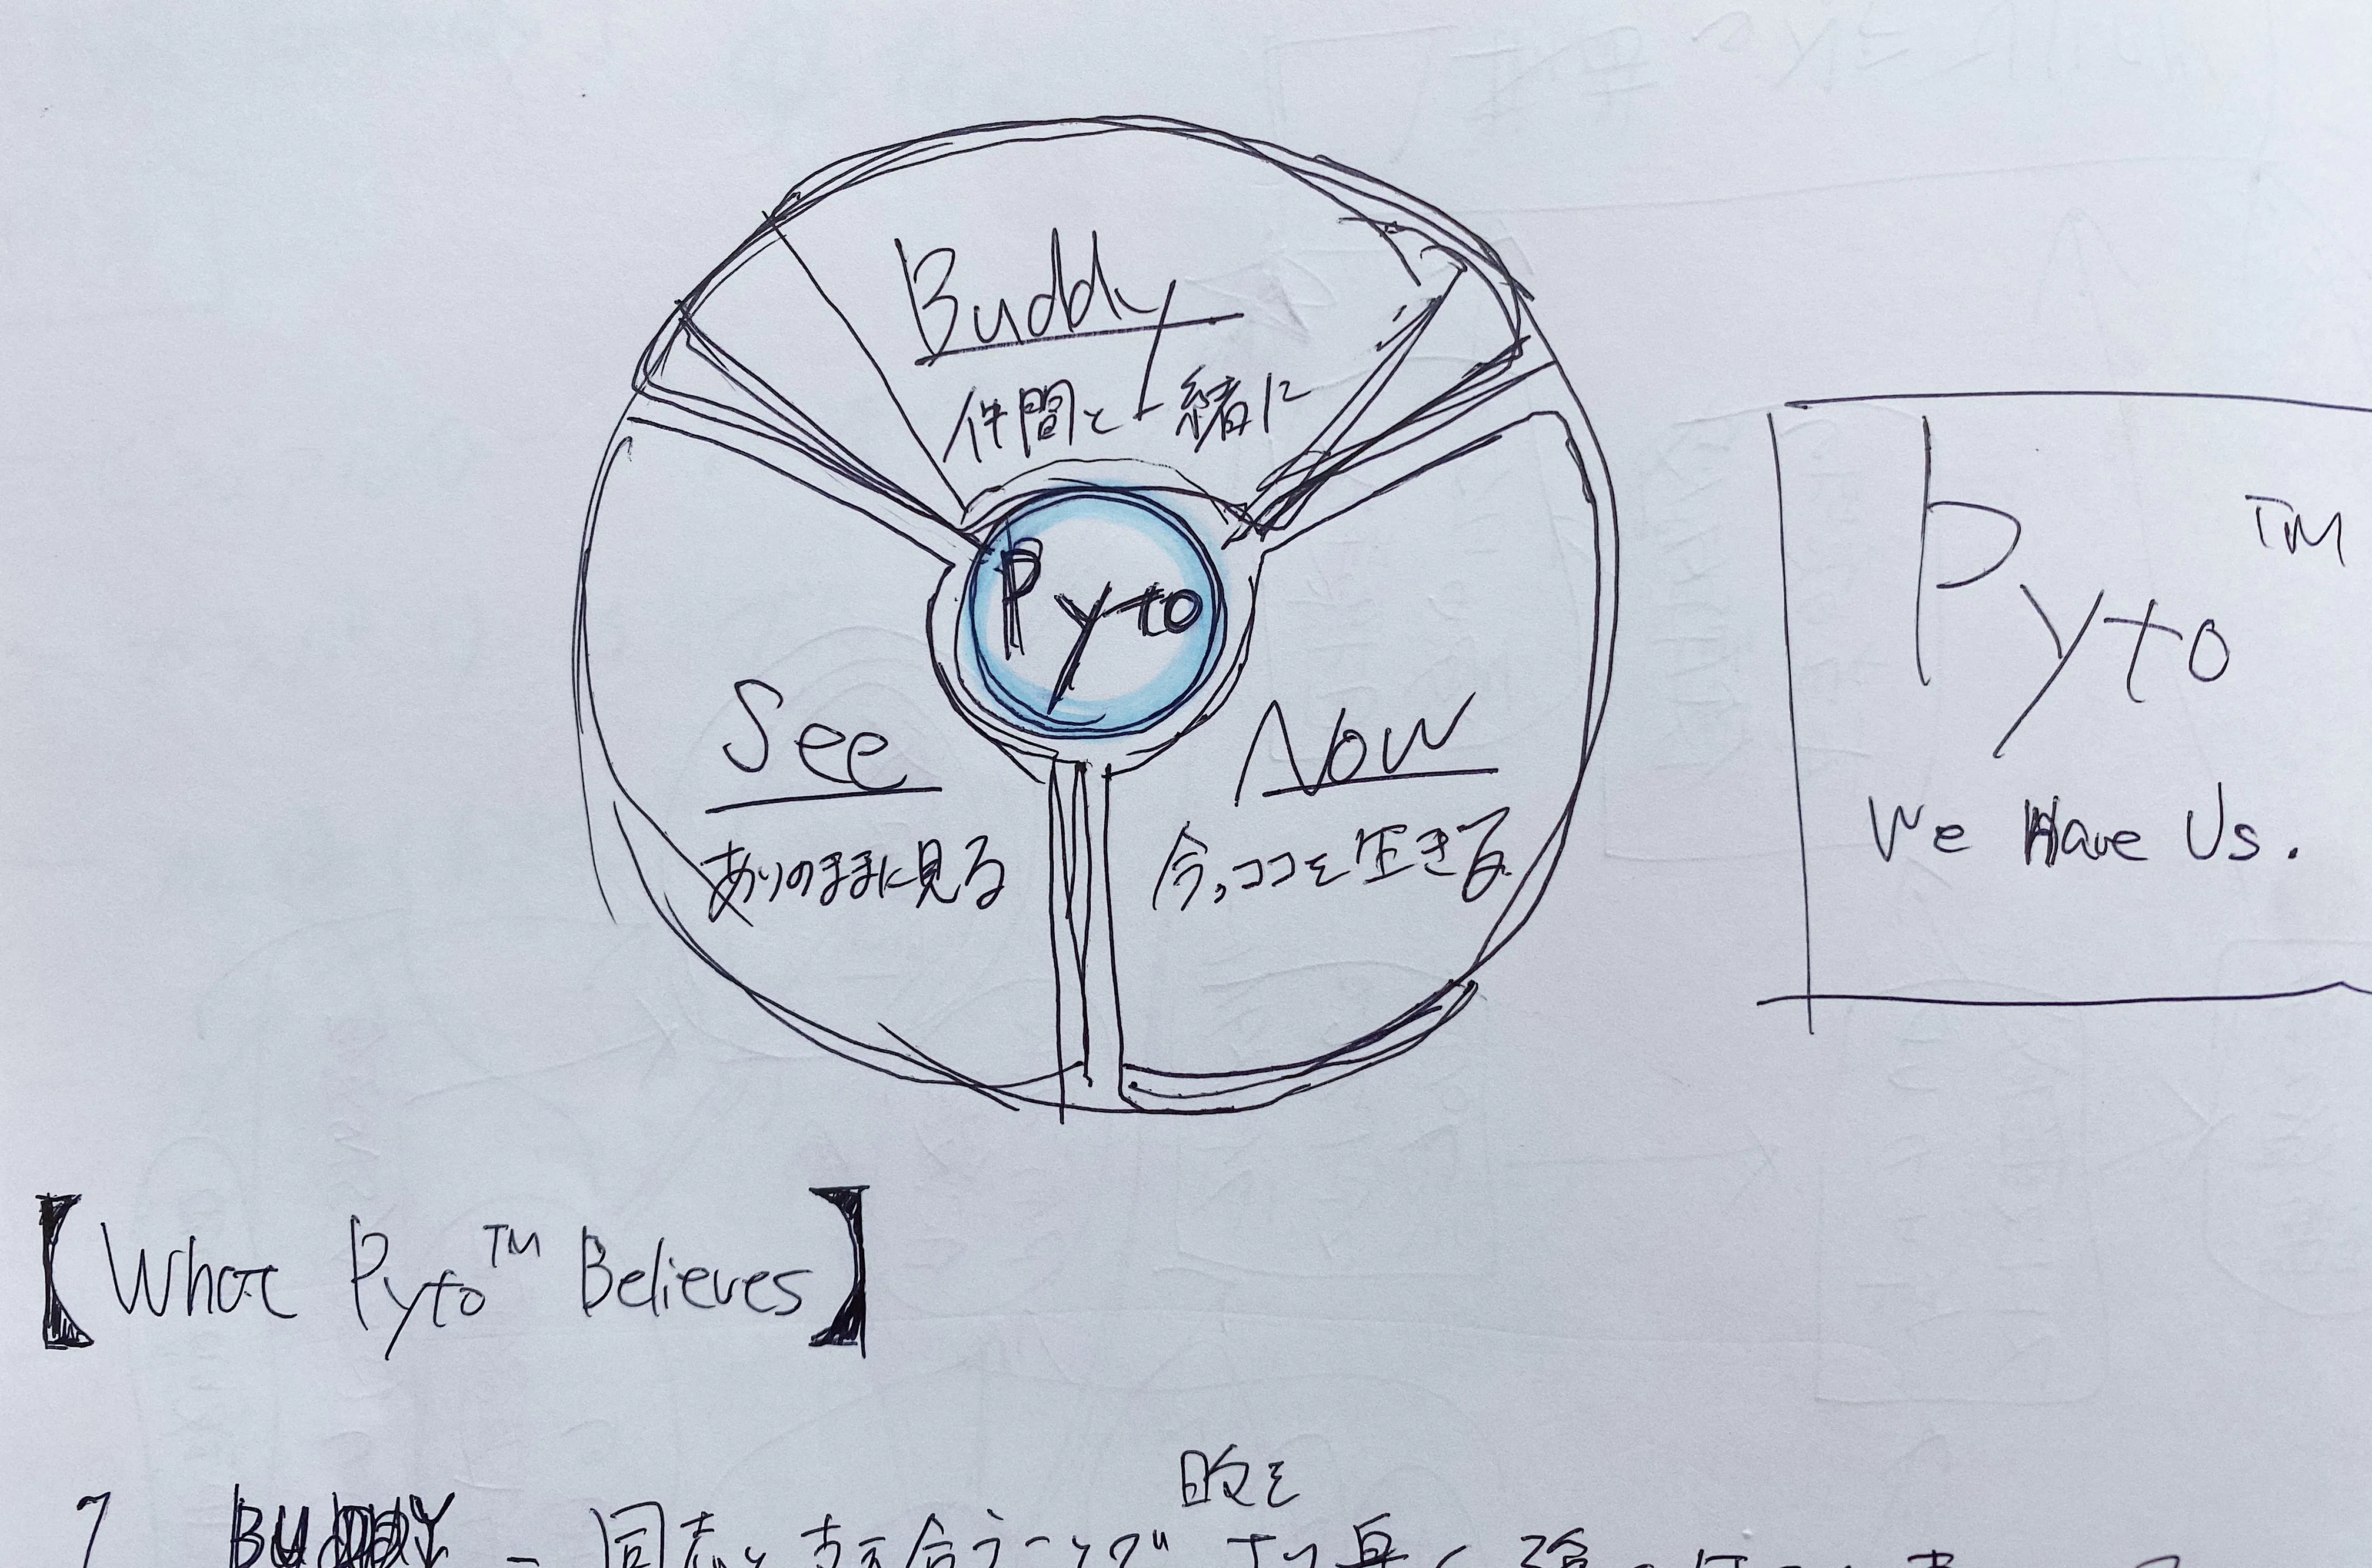 Buddy
仲間と一緒に
Pyto
See
ありのままに見る
Now
今,ココを生きる
Pyto™
We Have Us.
【What Pyto™ Believes】
BUDDY - 同志と支え合うことで